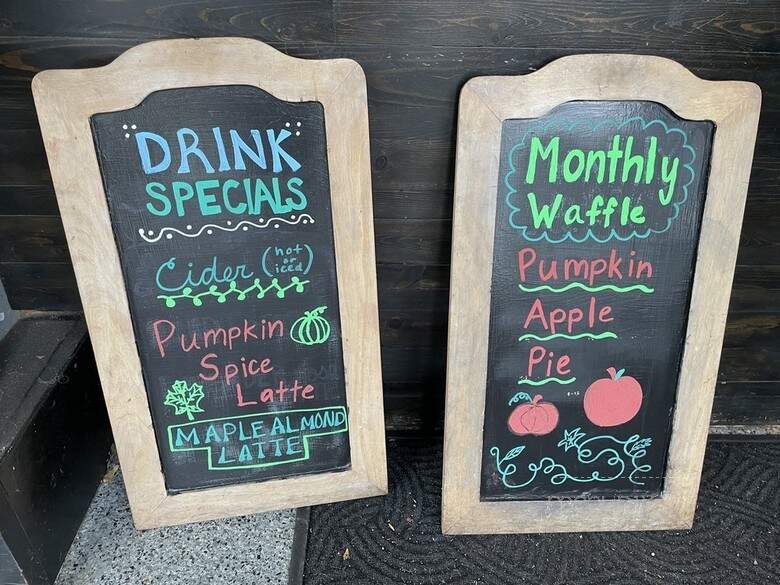 DRINK
SPECIALS
Cider (hot or iced)
Pumpkin
Spice
Latte
MAPLE ALMOND
LATTE
Monthly
Waffle
Pumpkin
Apple
Pie